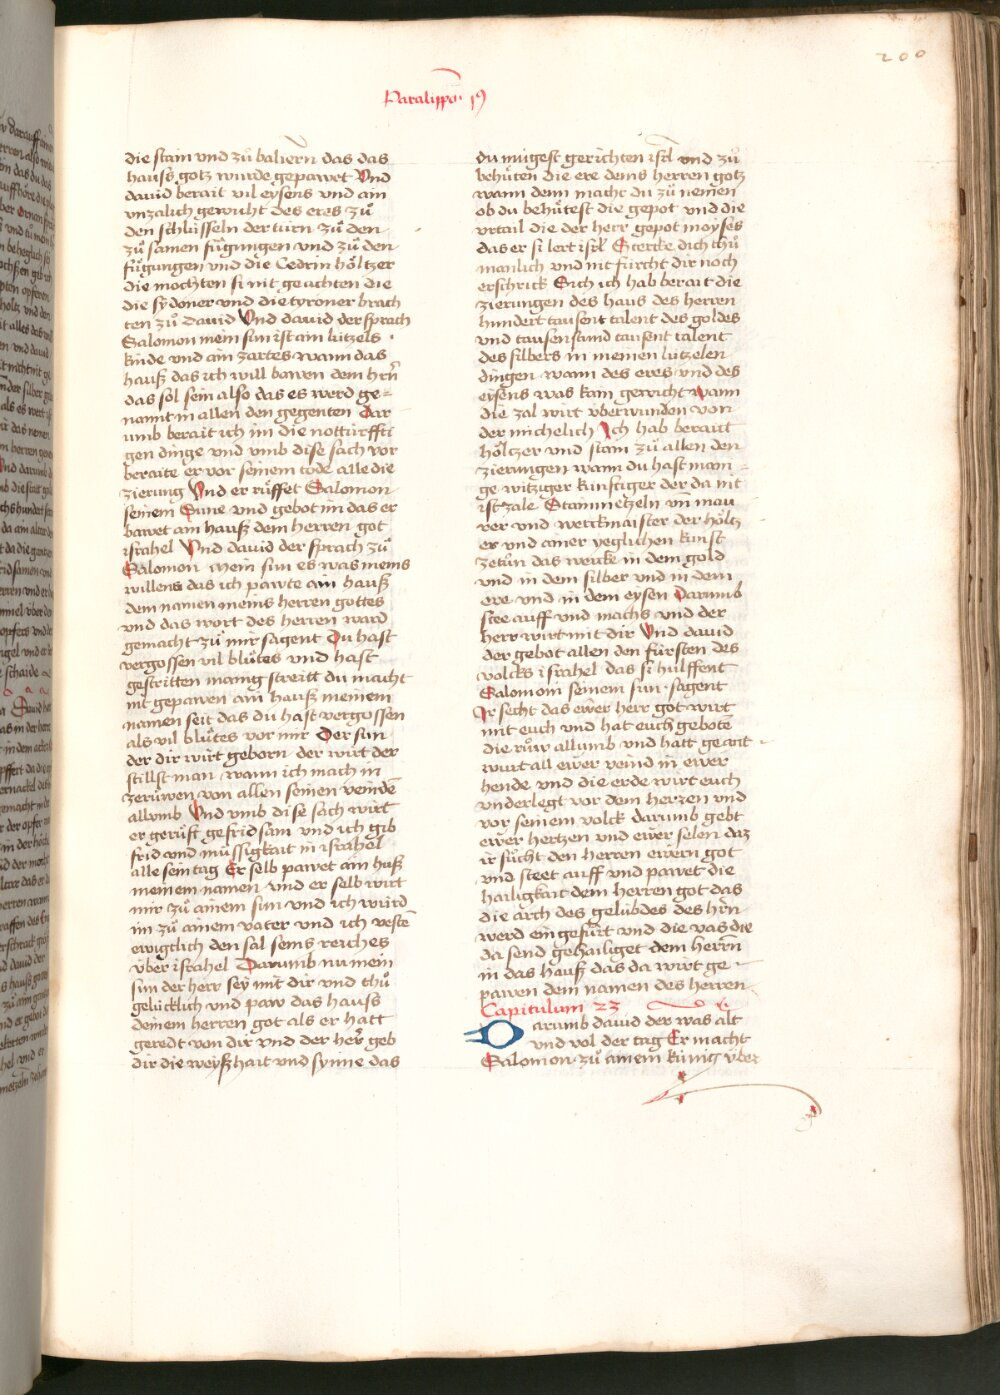 200
Paralippon 19
die stain vnd zů baliern das das
hauss gotz wurde gepawet Vnd
dauid berait vil eysens vnd ain
vnzalich gewicht des eres zů
den schlüsseln der türn zů den
zů samen fügungen vnd zů den
fügungen vnd die Cedrin höltzer
die mochten si nit geachten die
die sydoner vnd die tyroner brach
ten zů dauid Vnd dauid der sprach
Salomon mein sun ist ain lützels
kinde vnd ain zartes wann das
hauß das ich will bawen dem hrn̄
das sol sein also das es werd ge=
nannt in allen den gegenten Dar
umb berait ich im die notturffti
gen dinge vnd vmb dise sach vor
beraite er vor seinem tode alle die
zierung Vnd er rüffet Salomon
seinem Sune vnd gebot im das er
bawet ain hauß dem herren got
israhel Vnd dauid der sprach zů
Salomon mein sun es was meins
willens das ich pawte ain hauß
dem namen meins herren gottes
vnd das wort des herren ward
gemacht zů mir sagent Du hast
vergossen vil blütes vnd hast
gestritten manig streitt du macht
nit gepawen ain hauß meinem
namen seit das du hast vergossen
als vil blütes vor mir Der sun
der dir wirt geborn der wirt der
stillst man wann ich mach in
zerüwen von allen seinen veinde
allumb Vnd vmb dise sach wirt
er gerüft gefridsam vnd ich gib
frid vnd müssigkait in israhel
alle sein tag Er selb pawet ain huß
meinem namen vnd er selb wirt
mir zů ainem sun vnd ich würd
im zů ainem vater vnd ich veste
ewigtlich den sal seins reiches
über israhel Darumb nu mein
sun der herr sey mit dir vnd thů
gelücklich vnd paw das hauss
deinem herren got als er hatt
geredt von dir vnd der her̄ geb
dir die weyßhait vnd synne das
du mügest gerichten isrl vnd zů
behüten die ere deins herren gotz
wann denn macht du zů nemen
ob du behütest die gepot vnd die
vrtail die der herr gepot moyses
das er si lert isrl Stercke dich thů
manlich vnd nit fürcht dir noch
erschrick Sich ich hab berait die
zierungen des haus des herren
hundert tausent talent des goldes
vnd tausenstund tausent talent
des silbers in meinen lützelen
dingen wann des eres vnd des
eysens was kain gewicht wann
die zal wirt vberwunden von
der michelich Ich hab beraitt
höltzer vnd stain zů allen den
zierungen wann du hast mani=
ge witziger künstiger der da nit
ist zale Stainmetzeln vn̄ mau
rer vnd werckmaister der höltz
er vnd ainer yeglichen kunst
zetůn das wercke in dem gold
vnd in dem silber vnd in dem
ere vnd in dem eysen Darumb
stee auff vnd machs vnd der
herr wirt mit dir Vnd dauid
der gebot allen den fürsten des
volcks israhel das si hülffent
Salomoni seinem sun sagent
Ir secht das ewer herr got wirt
mit euch vnd hat euch gebotē
die růw allumb vnd hatt geant
wurt all ewer veind in ewer
hende vnd die erde wirt euch
vnderlegt vor dem herren vnd
vor seinem volck darumb gebt
ewer hertzen vnd ewer selen daz
ir sůcht den herren ewern got
vnd steet auff vnd pawet die
hailigkait dem herren got das
die arch des gelübdes des hrn̄
werd eingefürt vnd die vas die
da send gehailiget dem herrn
in das hauß das da wirt ge
pawen dem namen des herren
Capitulum 23
Darumb dauid der was alt
vnd vol der tag Er macht
Salomon zů ainem künig über